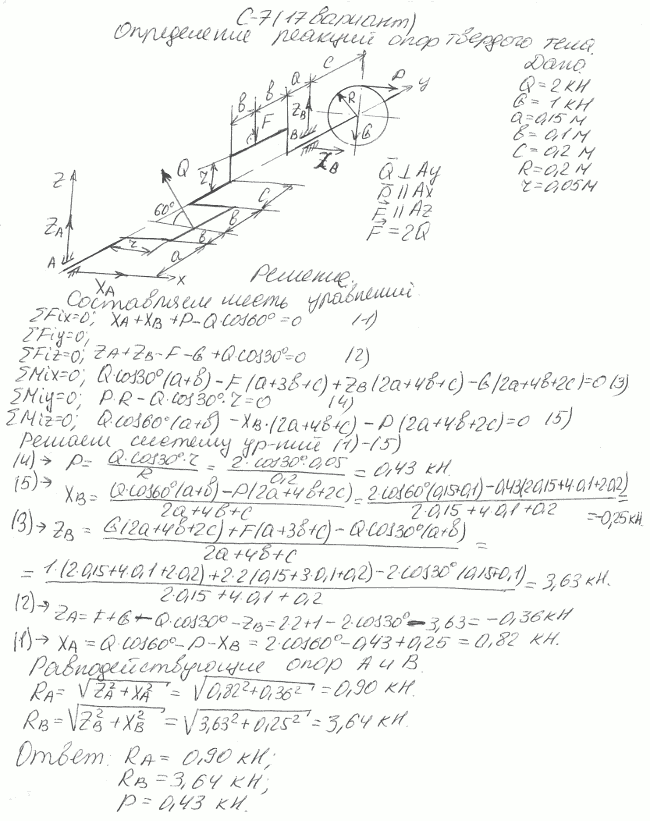 С-7 (17 вариант)
Определение реакций опор твердого тела.
Дано:
Q = 2 кН
G = 1 кН
a = 0,15 м
b = 0,1 м
C = 0,2 м
R = 0,2 м
r = 0,05 м
b b a C
F Z_B R P y
G
X_B
Q r
60°
Z Z_A
A X_A x
r a b b C
Q̄ ⊥ Ay
P̄ ∥ Ax
F̄ ∥ Az
F̄ = 2Q
Решение.
Составляем шесть уравнений.
ΣFix=0; X_A + X_B + P - Q·cos60° = 0 (1)
ΣFiy=0;
ΣFiz=0; Z_A + Z_B - F - G + Q·cos30° = 0 (2)
ΣMix=0; Q·cos30°(a+b) - F(a+3b+c) + Z_B(2a+4b+c) - G(2a+4b+2c) = 0 (3)
ΣMiy=0; P·R - Q·cos30°·r = 0 (4)
ΣMiz=0; Q·cos60°(a+b) - X_B·(2a+4b+c) - P(2a+4b+2c) = 0 (5)
Решаем систему ур-ний (1)-(5)
(4)→ P = Q·cos30°·r / R = 2·cos30°·0,05 / 0,2 = 0,43 кН.
(5)→ X_B = Q·cos60°(a+b) - P(2a+4b+2c) / 2a+4b+c = 2·cos60°(0,15+0,1) - 0,43(2·0,15+4·0,1+2·0,2) / 2·0,15+4·0,1+0,2 =
= -0,25 кН.
(3)→ Z_B = G(2a+4b+2c) + F(a+3b+c) - Q·cos30°(a+b) / 2a+4b+c =
= 1·(2·0,15+4·0,1+2·0,2) + 2·2(0,15+3·0,1+0,2) - 2·cos30°(0,15+0,1) / 2·0,15+4·0,1+0,2 = 3,63 кН.
(2)→ Z_A = F+G - Q·cos30° - Z_B = 2·2+1 - 2·cos30° - 3,63 = -0,36 кН
(1)→ X_A = Q·cos60° - P - X_B = 2·cos60° - 0,43 + 0,25 = 0,82 кН.
Равнодействующие опор А и В.
R_A = √(Z_A² + X_A²) = √(0,82² + 0,36²) = 0,90 кН.
R_B = √(Z_B² + X_B²) = √(3,63² + 0,25²) = 3,64 кН.
Ответ: R_A = 0,90 кН;
R_B = 3,64 кН;
P = 0,43 кН.